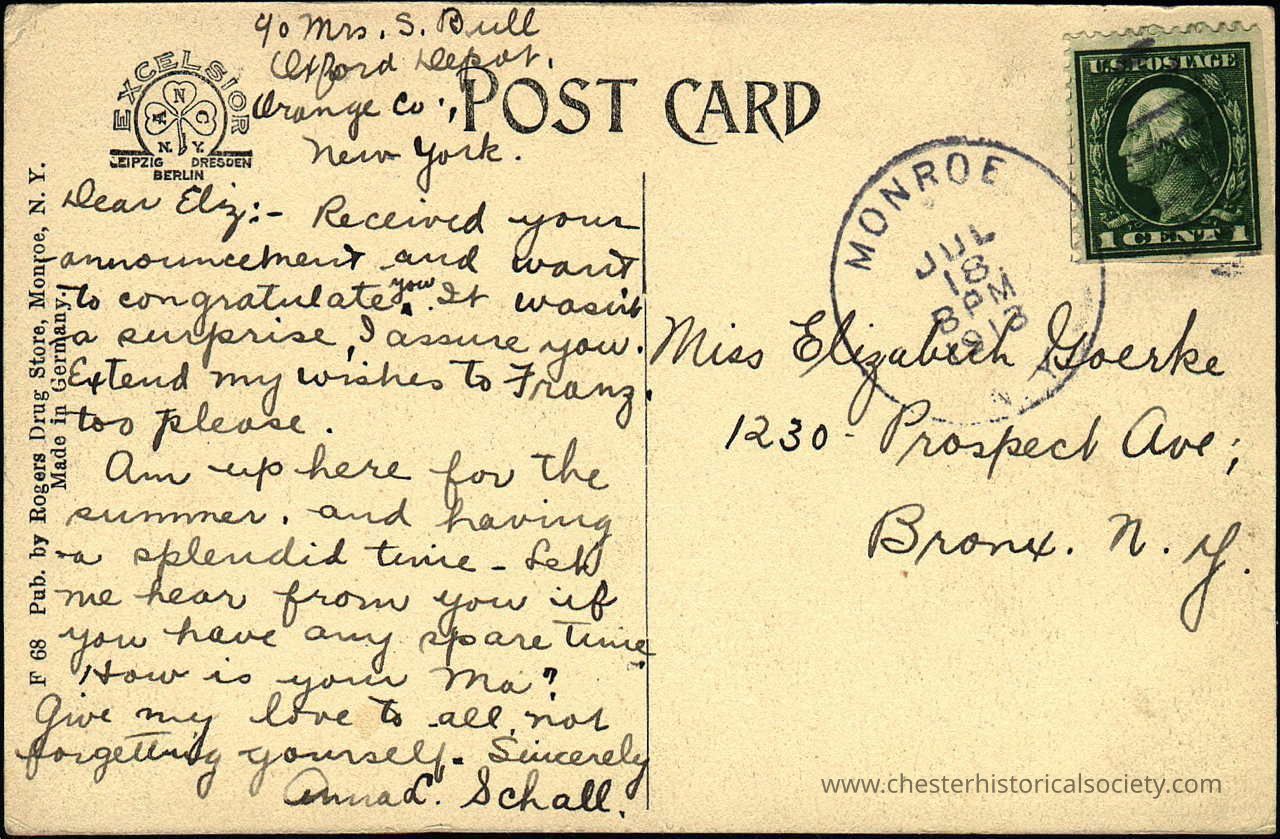 c/o Mrs. S. Bull
Oxford Depot.
Orange Co.,
New York.
EXCELSIOR
A N C
N. Y.
LEIPZIG DRESDEN
BERLIN
POST CARD
U.S. POSTAGE
1 CENT 1
MONROE
JUL
18
8 PM
1913
N.Y.
F 68 Pub. by Rogers Drug Store, Monroe, N. Y.
Made in Germany.
Dear Eliz:- Received your
announcement and want
to congratulate you. It wasn't
a surprise, I assure you.
Extend my wishes to Franz.
too please.
Am up here for the
summer. and having
a splendid time - Let
me hear from you if
you have any spare time.
How is your Ma?
Give my love to all, not
forgetting yourself. Sincerely
Anna L. Schall.
Miss Elizabeth Goerke
1230 - Prospect Ave;
Bronx. N. Y.
www.chesterhistoricalsociety.com